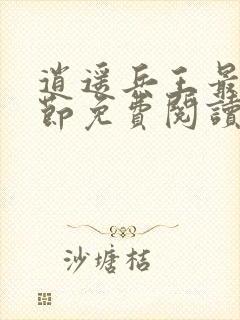 逍遥兵王最
節免費閱讀
沙塘桔